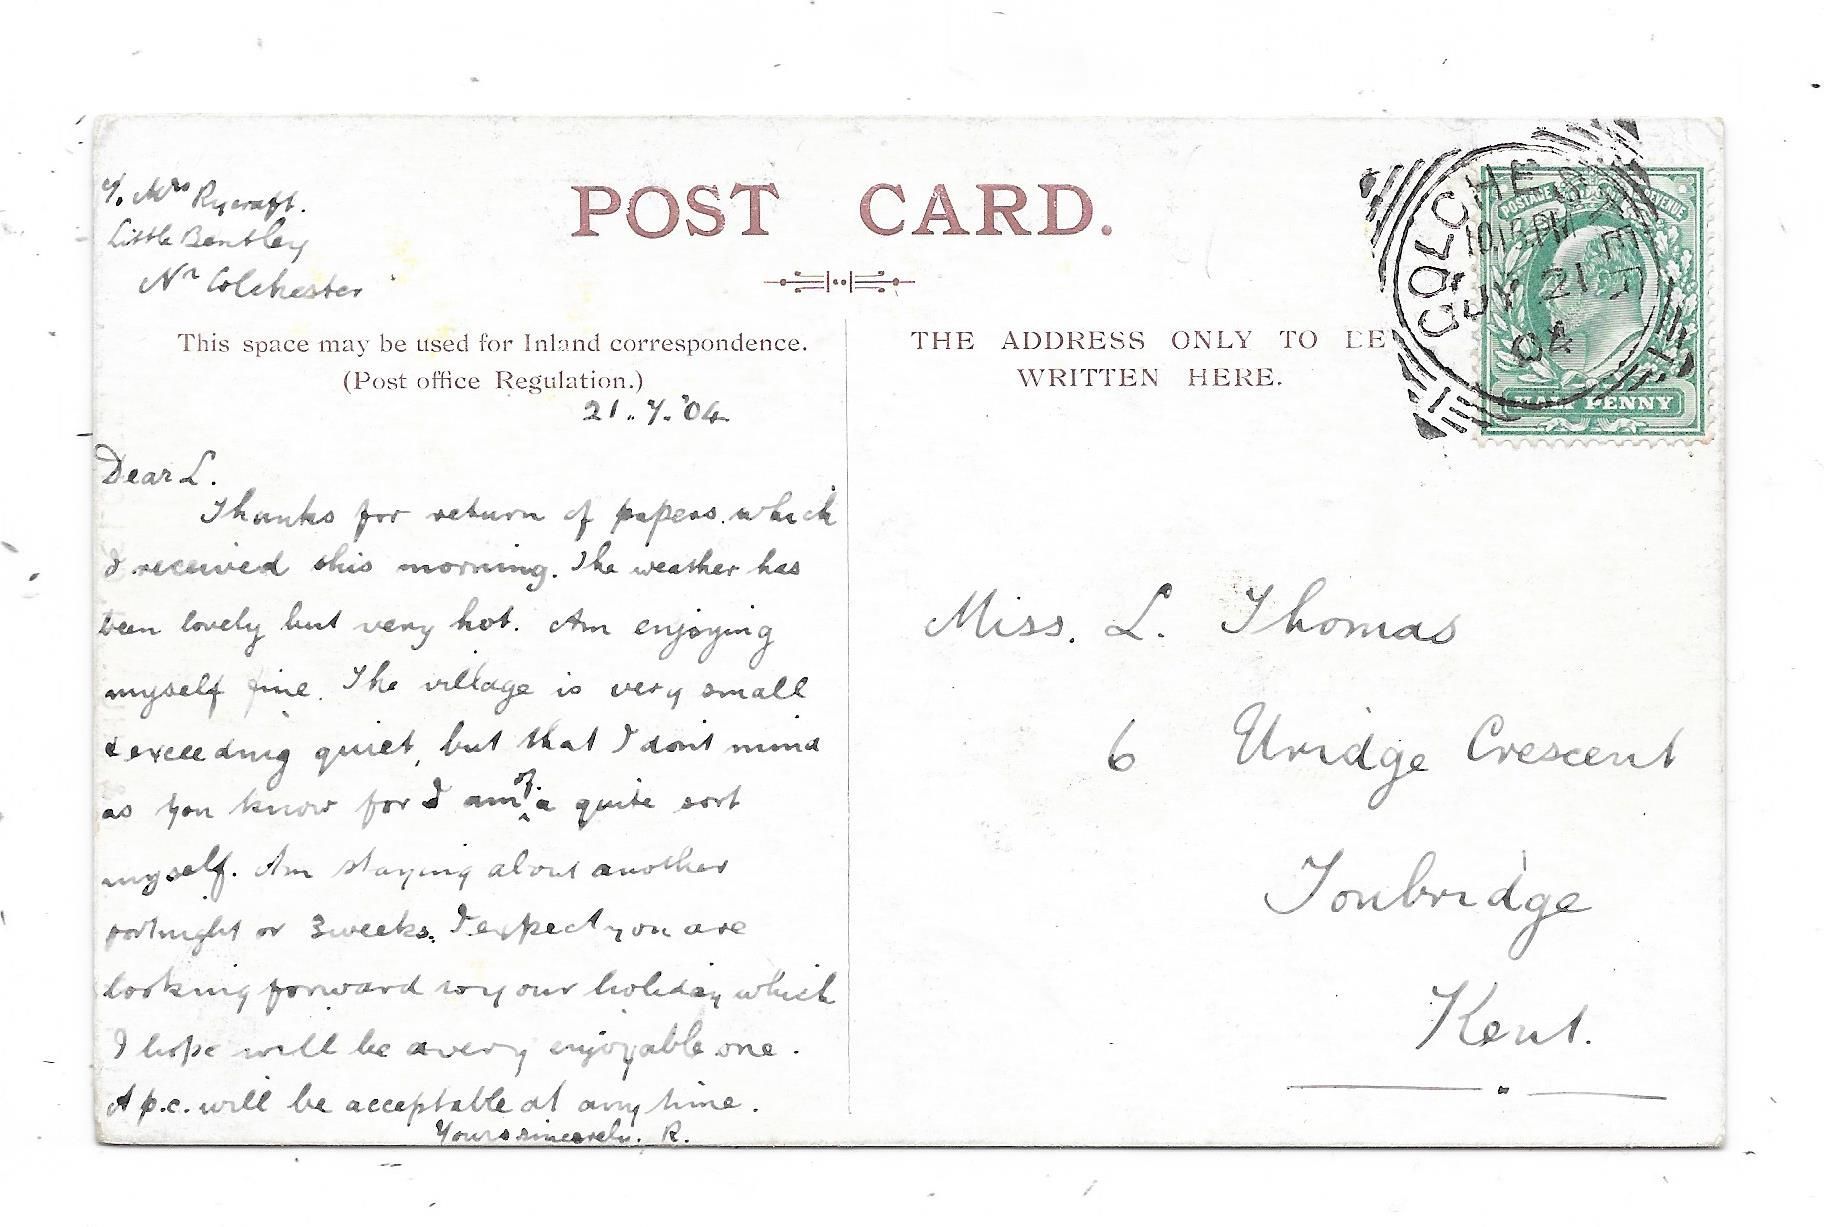 c/o. Mrs Rycraft.
Little Bentley
Nr Colchester
POST CARD.
This space may be used for Inland correspondence.
(Post office Regulation.)
21.7.'04.
Dear L.
Thanks for return of papers which
I received this morning. The weather has
been lovely but very hot. Am enjoying
myself fine. The village is very small
& exceeding quiet, but that I don't mind
as you know for I am of a quite sort
myself. Am staying about another
fortnight or 3 weeks. I expect you are
looking forward to your holiday which
I hope will be a very enjoyable one.
A p.c. will be acceptable at any time.
Yours sincerely. R.
THE ADDRESS ONLY TO BE
WRITTEN HERE.
COLCHESTER
10.15 PM
JY 21
04
POSTAGE & REVENUE
HALF PENNY
Miss. L. Thomas
6 Uridge Crescent
Tonbridge
Kent.